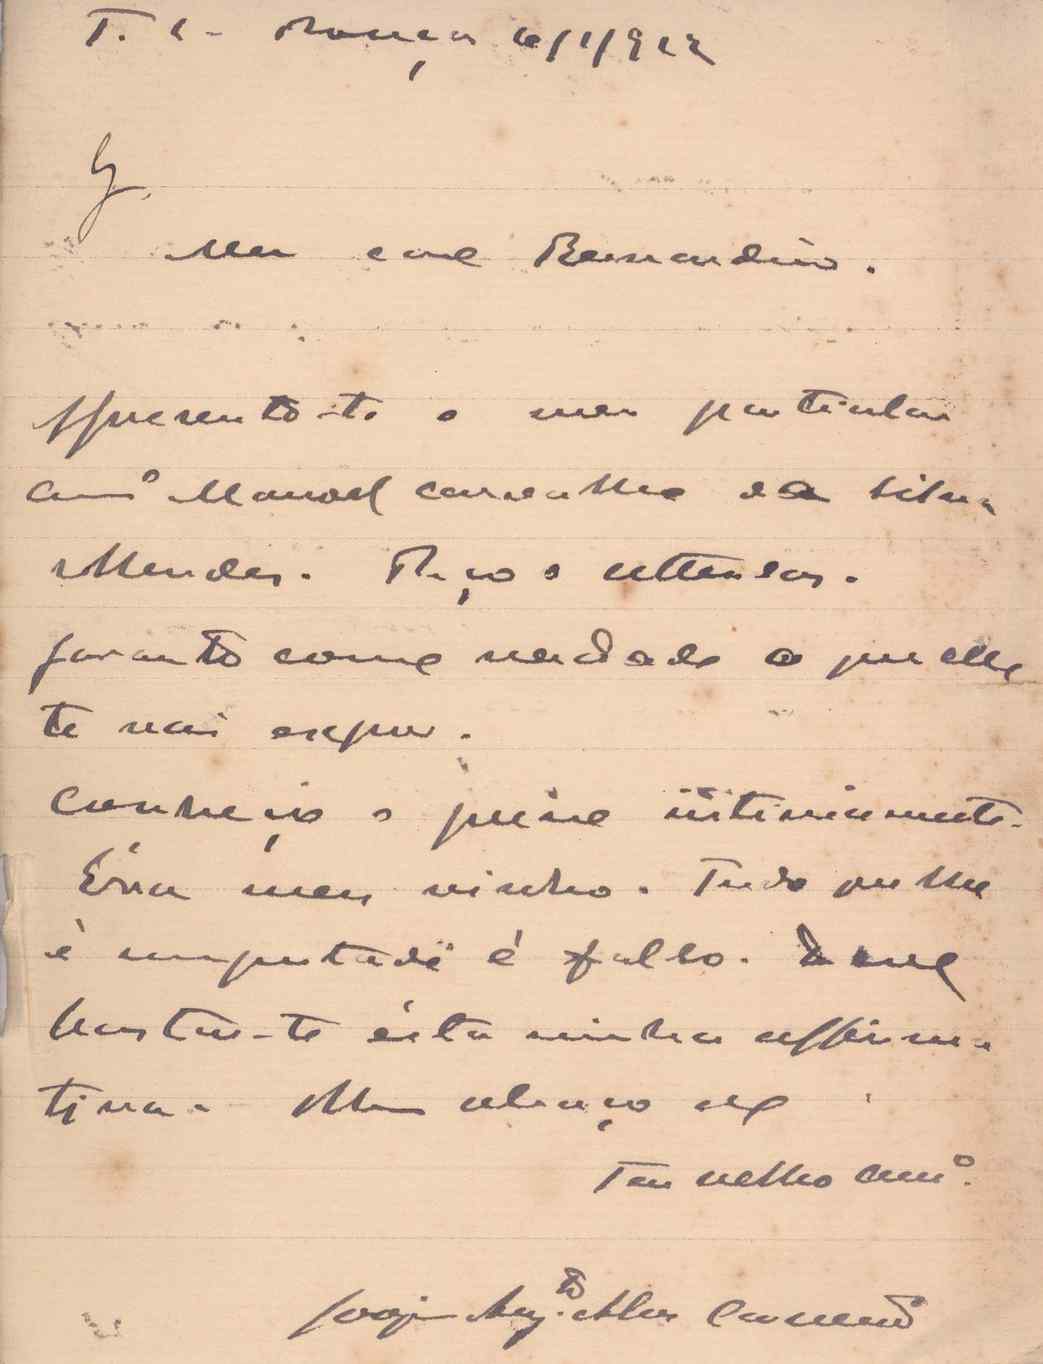 T. C. Monção 6/1/912
Meu caro Bernardino.
Apresento-te o meu particular
amº Manoel Carvalho da Silva
Mendes. Peço o attendas.
Garanto como verdade o que elle
te vai expor.
Conheço o intimamente.
Éra meu visinho. Tudo que lhe
é imputado é falso. Deve
bastar-te ésta minha affirma
tiva. Um abraço do
Teu velho amº.
Augto